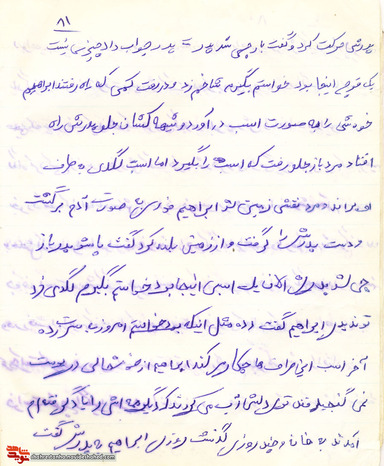 ۸۱
پدرش حرکت کرد و گفت باز چی شد پدر پدر جواب داد چیزی نیست
یک قوچ اینجا بود خواستم بگیرم شاخم زد و در رفت کمی که راه رفتند ابراهیم
خودش را به صورت اسب در آورد و شیهه کشان جلو پدرش راه
افتاد مرد باز جلو رفت که اسب را بگیرد اما اسب لگدی به طرف
او پراند و مرد نقش زمین شد ابراهیم فوری صورت آدم برگشت
و دست پدرش را گرفت و از زمین بلند کرد گفت پاشو پدر باز
چی شد پدرش الان یک اسبی اینجا بود خواستم بگیرم لگدی زد
تو ابراهیم گفت مثل اینکه امروز به سرت زده
آخر اسب این طرف ها چکار می کند ابراهیم از خوشحالی در پوست
نمی گنجید قند توی دلش آب می کردند که دیگر را یاد گرفته ام
آمدند به خانه و چند روزی گذشت روزی ابراهیم به پدرش گفت
shohadanbo.navideshahed.com